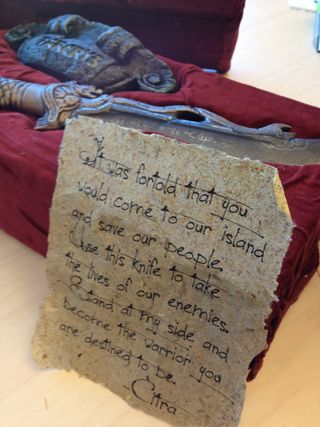 It was fortold that you
would come to our island
and save our people.
Use this knife to take
the lives of our enemies.
Stand at my side and
become the warrior you
are destined to be.
Citra